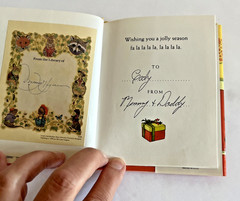 From the Library of
Wishing you a jolly season
fa la la la la, la la la la.
TO
Cody
FROM
Mommy & Daddy